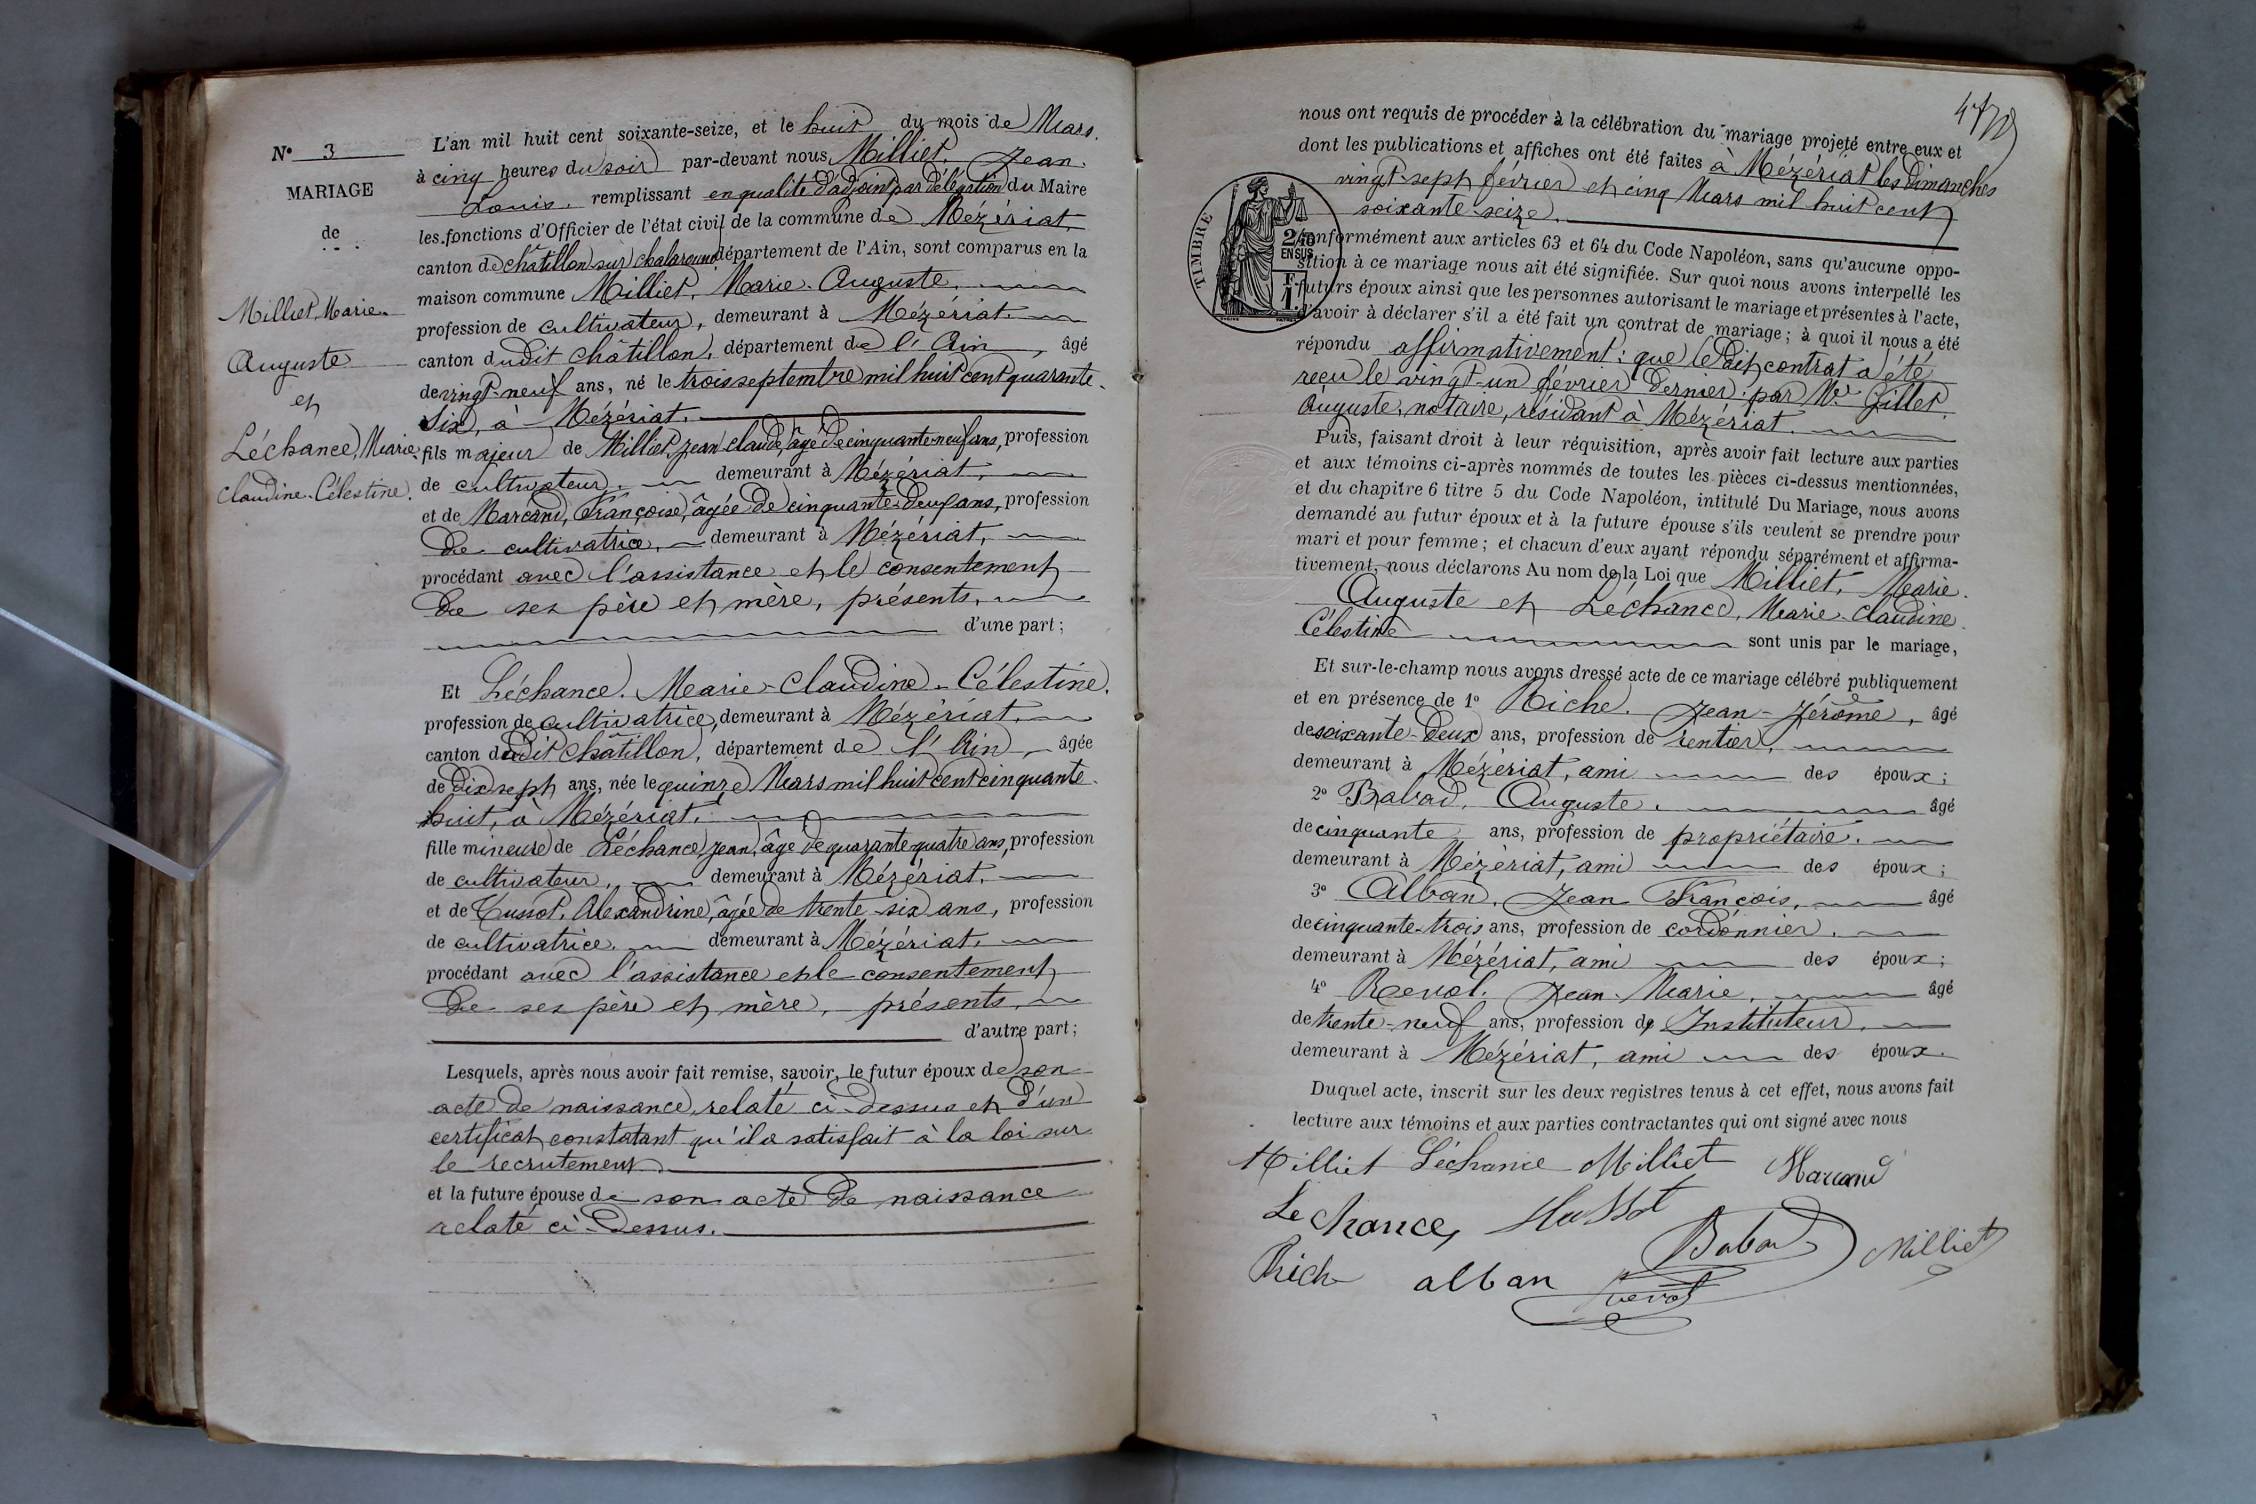 N° 3
MARIAGE
de
Milliet, Marie-
Auguste
et
Léchance, Marie-
Claudine-Célestine.
L'an mil huit cent soixante-seize, et le huit du mois de Mars.
à cinq heures du soir par-devant nous, Milliet, Jean-
Louis. remplissant en qualité d'adjoint par délégation du Maire
les fonctions d'Officier de l'état civil de la commune de Mézériat,
canton de châtillon sur chalaronne, département de l'Ain, sont comparus en la
maison commune Milliet, Marie-Auguste,
profession de cultivateur, demeurant à Mézériat.
canton dudit Châtillon, département de l'Ain, âgé
de vingt-neuf ans, né le trois septembre mil huit cent quarante-
six, à Mézériat.
fils majeur de Milliet, Jean claude, âgé de cinquante-neuf ans, profession
de cultivateur, demeurant à Mézériat,
et de Marcand, Françoise, âgée de cinquante-deux ans, profession
de cultivatrice, demeurant à Mézériat,
procédant avec l'assistance et le consentement
de ses père et mère, présents,
d'une part;
Et Léchance. Marie-Claudine-Célestine.
profession de cultivatrice, demeurant à Mézériat,
canton dudit Châtillon, département de l'Ain, âgée
de dix sept ans, née le quinze Mars mil huit cent cinquante-
huit, à Mézériat,
fille mineure de Léchance, Jean, âgé de quarante quatre ans, profession
de cultivateur, demeurant à Mézériat,
et de Alexandrine, âgée de trente-six ans, profession
de cultivatrice. demeurant à Mézériat,
procédant avec l'assistance et le consentement
de ses père et mère, présents,
d'autre part;
Lesquels, après nous avoir fait remise, savoir, le futur époux de son
acte de naissance relaté ci-dessus et d'un
certificat constatant qu'il a satisfait à la loi sur
le recrutement.
et la future épouse de son acte de naissance
relaté ci-dessus.
nous ont requis de procéder à la célébration du mariage projeté entre eux et
dont les publications et affiches ont été faites à Mézériat les dimanches
vingt-sept février et cinq Mars mil huit cent
soixante-seize.
TIMBRE
2/10
EN SUS
F
1.
conformément aux articles 63 et 64 du Code Napoléon, sans qu'aucune oppo-
sition à ce mariage nous ait été signifiée. Sur quoi nous avons interpellé les
futurs époux ainsi que les personnes autorisant le mariage et présentes à l'acte,
d'avoir à déclarer s'il a été fait un contrat de mariage; à quoi il nous a été
répondu affirmativement: que ledit contrat a été
reçu le vingt-un février dernier par Me Gillet,
Auguste, notaire, résidant à Mézériat.
Puis, faisant droit à leur réquisition, après avoir fait lecture aux parties
et aux témoins ci-après nommés de toutes les pièces ci-dessus mentionnées,
et du chapitre 6 titre 5 du Code Napoléon, intitulé Du Mariage, nous avons
demandé au futur époux et à la future épouse s'ils veulent se prendre pour
mari et pour femme; et chacun d'eux ayant répondu séparément et affirma-
tivement, nous déclarons Au nom de la Loi que Milliet, Marie-
Auguste et Léchance, Marie-Claudine-
Célestine sont unis par le mariage,
Et sur-le-champ nous avons dressé acte de ce mariage célébré publiquement
et en présence de 1° Riche. Jean-Jérôme, âgé
de soixante-deux ans, profession de rentier,
demeurant à Mézériat, ami des époux;
2° Babad. Auguste. âgé
de cinquante ans, profession de propriétaire.
demeurant à Mézériat, ami des époux;
3° Alban, Jean François, âgé
de cinquante-trois ans, profession de cordonnier.
demeurant à Mézériat, ami des époux;
4° Revol. Jean-Marie, âgé
de trente-neuf ans, profession de Instituteur.
demeurant à Mézériat, ami des époux.
Duquel acte, inscrit sur les deux registres tenus à cet effet, nous avons fait
lecture aux témoins et aux parties contractantes qui ont signé avec nous
Milliet Léchance Milliet Marcand
Lechance,
Babad Milliet
Rich alban Revol